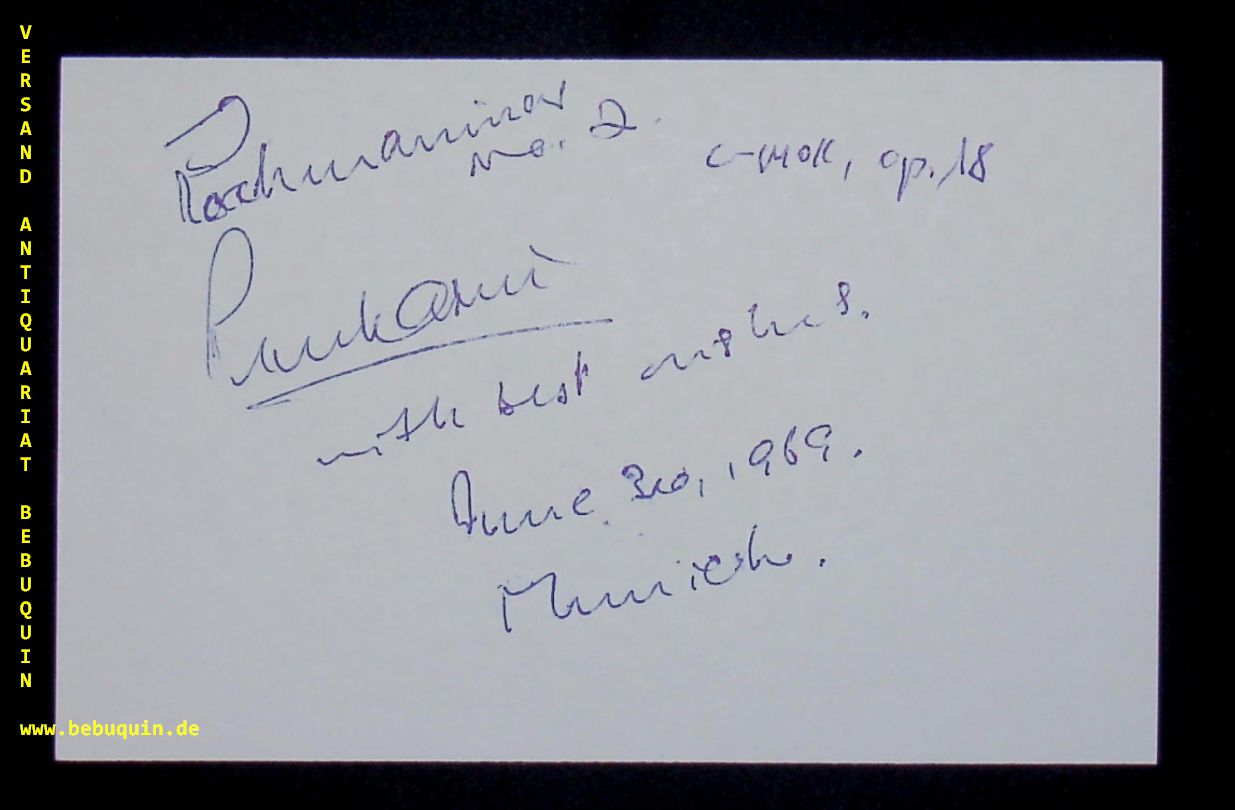 VERSAND ANTIQUARIAT BEBUQUIN
Rachmaninov
No. 2.
c-moll, op. 18
with best wishes.
June 30, 1969.
Munich.
www.bebuquin.de